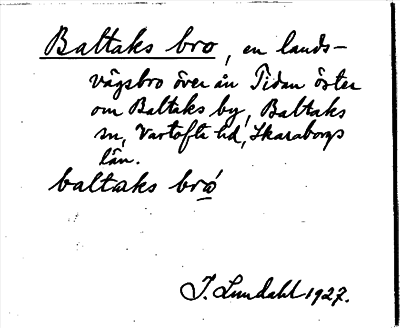 Baltaks bro, en lands-
vägsbro över ån Tidan öster
om Baltaks by, Baltaks
sn, Vartofta hd, Skaraborgs
län.
baltaks bró
J. Lundahl 1927.